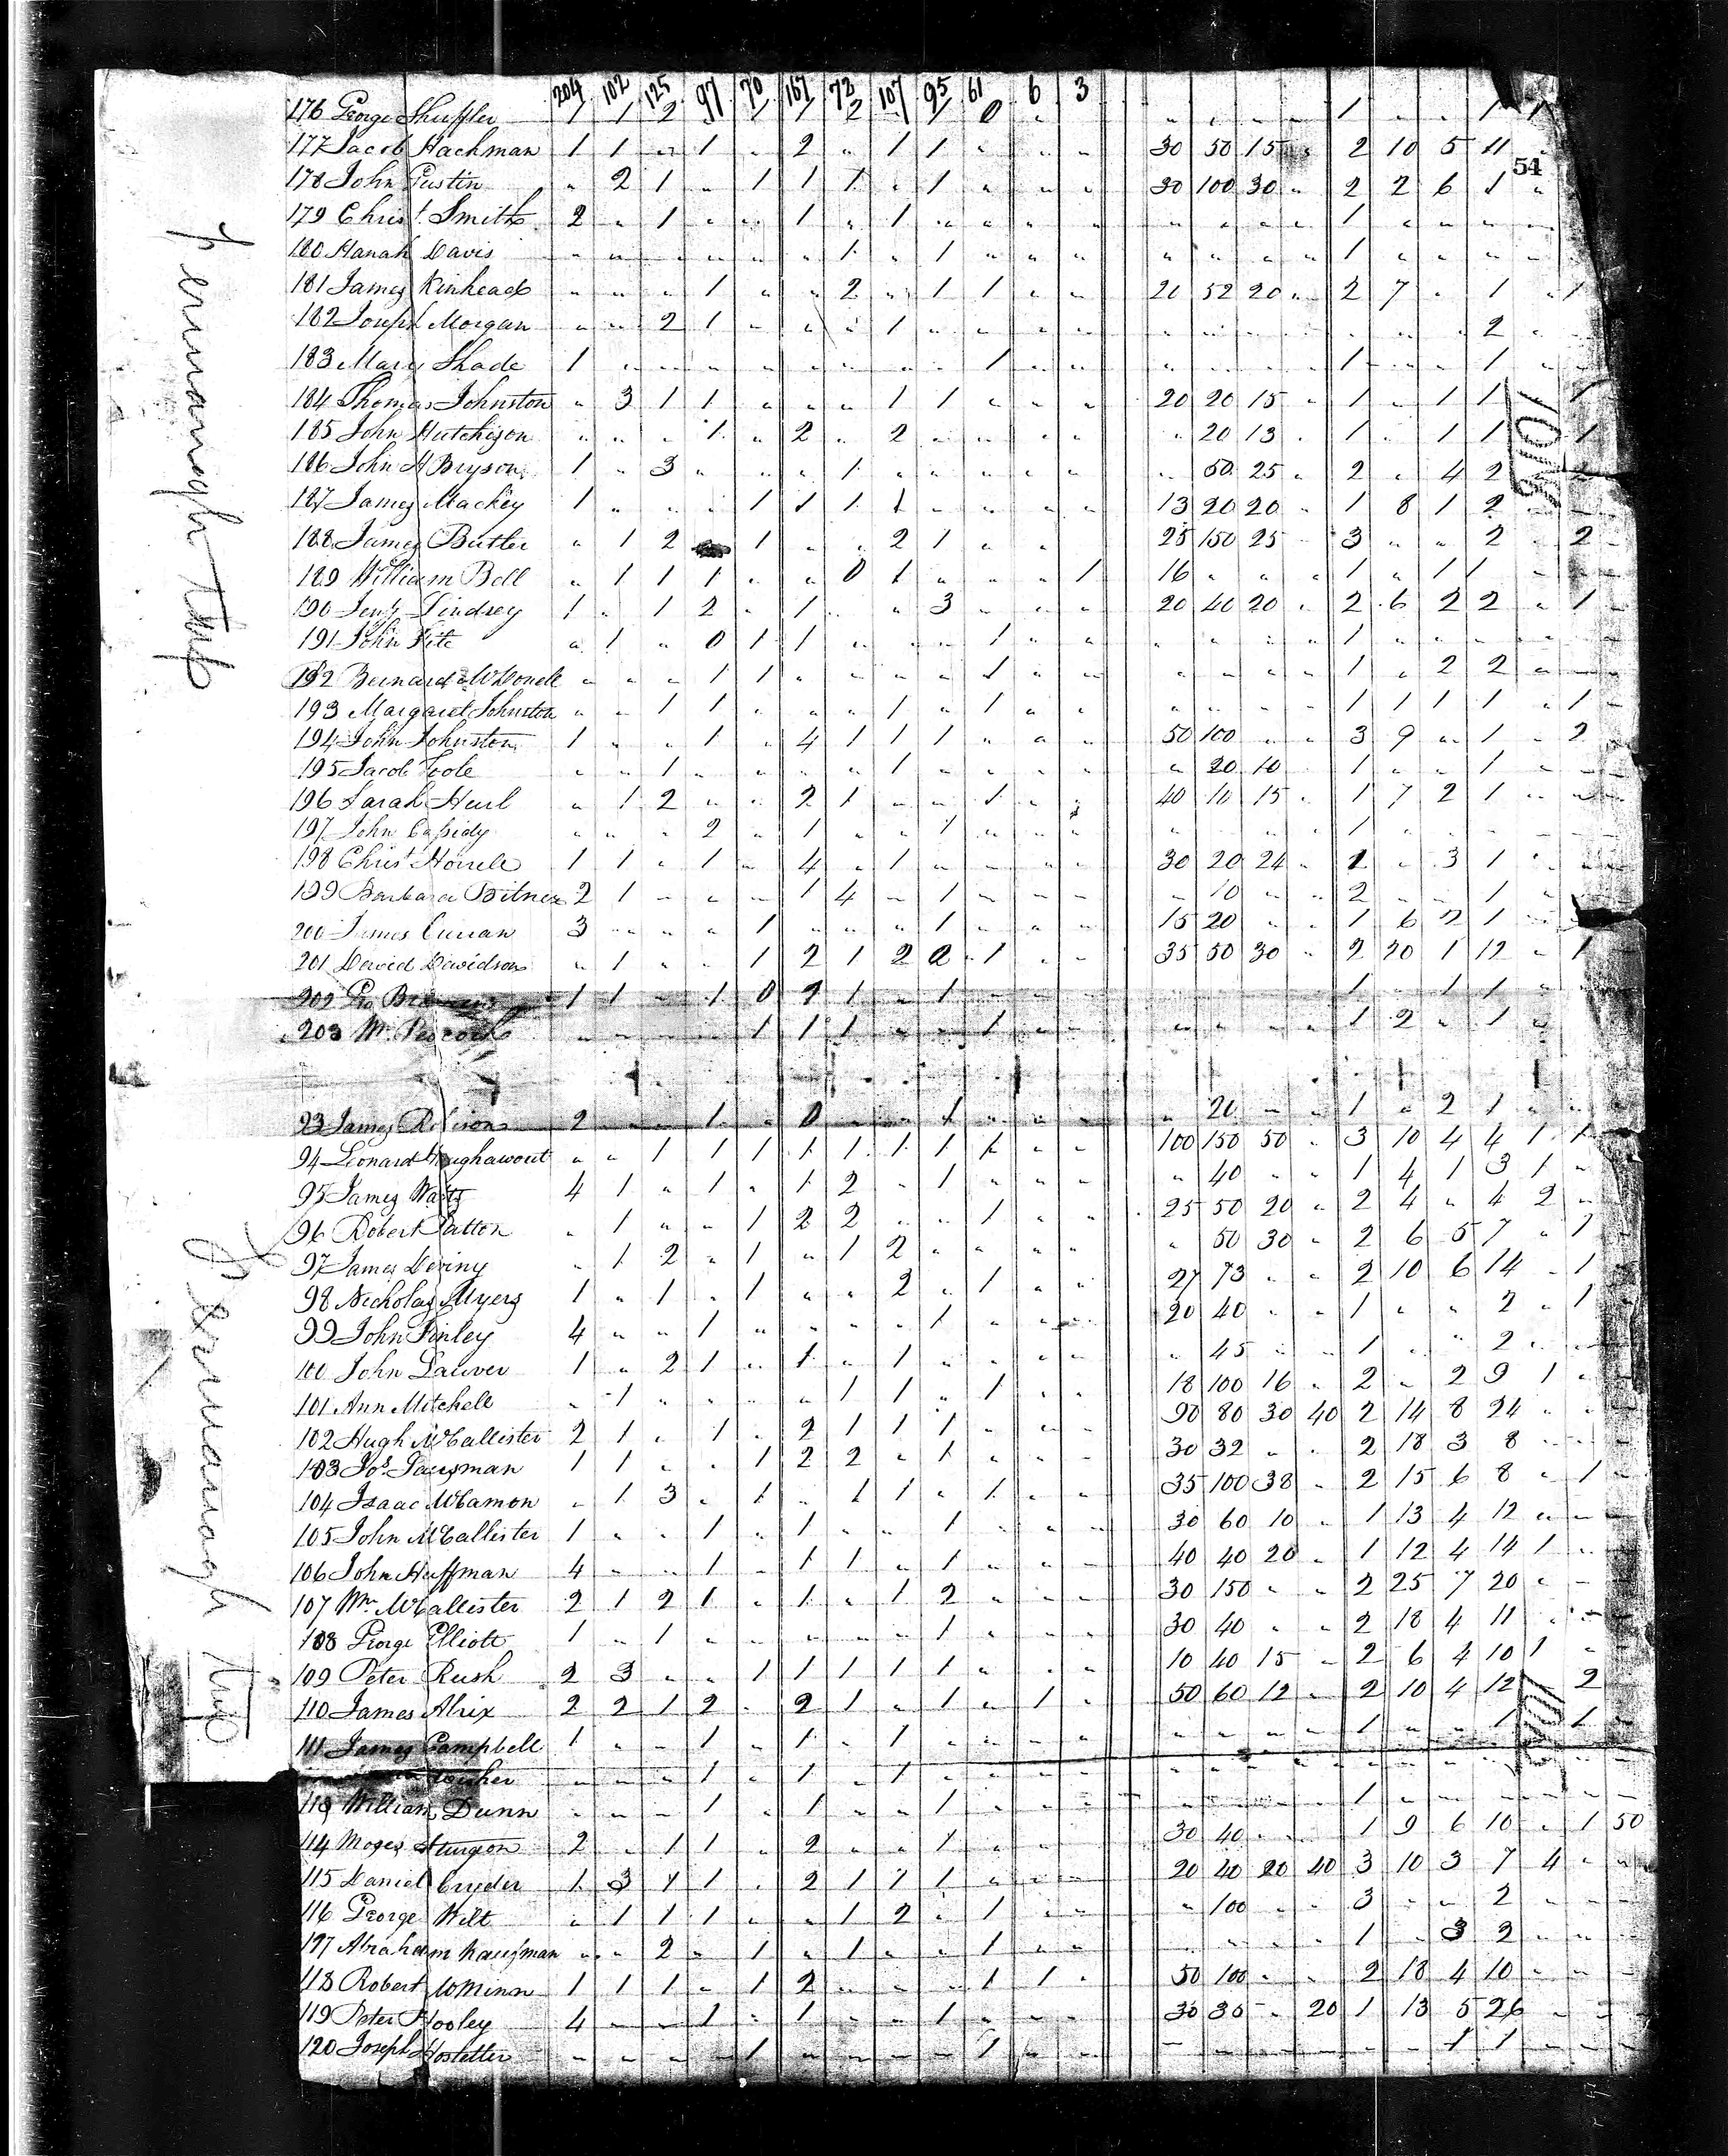 204 102 125 97 70 167 72 107 95 61 6 3
176 George Shuffler 1 1 2 " 1 1 2 " 1 0 " " " " " 1 " " 1 1
54
177 Jacob Hackman 1 1 " 1 " 2 " 1 1 " " " 30 50 15 " 2 10 5 11 "
178 John Gustin " 2 1 " 1 1 1 " 1 " " " 30 100 30 " 2 2 6 1 "
179 Christ. Smith 2 " 1 " " 1 " 1 " " " " " " " " 1 " " " "
180 Hanah Davis " " " " " " 1 " 1 " " " " " " " 1 " " " "
181 James Kinhead " " " 1 " " 2 " 1 1 " " 20 52 20 " 2 7 " 1 " 1
182 Joseph Morgan " " 2 1 " " " 1 " " " " " " " " " " " 2 "
183 Mary Shade 1 " " " " " " " " 1 " " " " " " 1 " " 1 "
184 Thomas Johnston " 3 1 1 " " " 1 1 " " " 20 20 15 " 1 " 1 1 " 1
185 John Hutchison " " " 1 " 2 " 2 " " " " " 20 13 " 1 " 1 1 " 1
186 John H Bryson 1 " 3 " " " 1 " " " " " " 50 25 " 2 " 4 2 " 2
187 James Mackey 1 " " " 1 1 1 1 " " " " 13 20 20 " 1 8 1 2 "
188 James Butler " 1 2 1 " " 2 1 " " 25 150 25 " 3 " " 2 " 2
189 William Bell " 1 1 1 " " 0 1 " " " 1 16 " " " 1 " 1 1 "
190 Lindsey 1 " 1 2 " 1 " " 3 " " " 20 40 20 " 2 6 2 2 " 1
191 John " 1 " 0 1 1 " " " 1 " " " " " " 1 " " " "
192 Bernard McDonell " " " 1 1 " " " " 1 " " " " " " 1 " 2 2 "
193 Margaret Johnston " " 1 1 " " " 1 " 1 " " " " " " 1 1 1 1 " 1
194 John Johnston 1 " " 1 " 4 1 1 1 " " " 50 100 " " 3 9 " 1 " 2
195 Jacob " " 1 " " " " 1 " " " " " 20 10 " 1 " " 1 "
196 Sarah " 1 2 " " 2 1 " " 1 " " 40 10 15 " 1 7 2 1 "
197 John Cassidy " " " 2 " 1 " " 1 " " " " " " " 1 " " " "
198 Christ 1 1 " 1 " 4 " 1 " " " " 30 20 24 " 1 " 3 1 "
199 Barbara Bitner 2 1 " " " 1 4 " 1 " " " " 10 " " 2 " " 1 "
200 James Curran 3 " " " 1 " " " 1 " " " 15 20 " " 1 6 2 1 "
201 David Davidson " 1 " " 1 2 1 2 2 1 " " 35 50 30 " 2 20 1 12 " 1
202 Geo 1 1 " 1 0 2 1 " 1 " " " 1 " 1 1 "
203 Wm Peacock " " " " 1 1 1 " " 1 " " " " " " 1 2 " 1 "
93 James Robison 2 " " 1 " 0 " " 1 " " " " 20 " " 1 " 2 1 "
94 Leonard Houghawout " " 1 1 1 1 1 1 1 1 " " 100 150 50 " 3 10 4 4 1 1
95 James 4 1 " 1 " 1 2 " 1 " " " " 40 " " 1 4 1 3 1 "
96 Robert Patton " 1 " " 1 2 2 " " 1 " " 25 50 20 " 2 4 " 4 2 "
97 James Deviny " 1 2 " 1 " 1 2 " " " " " 50 30 " 2 6 5 7 " 1
98 Nicholas Myers 1 " 1 " 1 " " 2 " 1 " " 27 73 " " 2 10 6 14 " 1
99 John Finley 4 " " 1 " " " " 1 " " " 20 40 " " 1 " " 2 " 1
100 John Lauver 1 " 2 1 " 1 " 1 " " " " " 45 " " 1 " " 2 "
101 Ann Mitchell " 1 " " " " 1 1 " 1 " " 18 100 16 " 2 " 2 9 1 "
102 Hugh McCallister 2 1 " 1 " 2 1 1 1 " " " 90 80 30 40 2 14 8 24 "
103 Jos. 1 1 " " 1 2 2 " 1 " " " 30 32 " " 2 18 3 8 "
104 Isaac McCamon " 1 3 " 1 " 1 1 " 1 " " 35 100 38 " 2 15 6 8 " 1
105 John McCallister 1 " " 1 " 1 " " 1 " " " 30 60 10 " 1 13 4 12 "
106 John Huffman 4 " " 1 " 1 1 " 1 " " " 40 40 20 " 1 12 4 14 1 "
107 Wm McCallister 2 1 2 1 " 1 " 1 2 " " " 30 150 " " 2 25 7 20 "
108 George Elliott 1 " 1 " " " " " 1 " " " 30 40 " " 2 18 4 11 "
109 Peter Rush 2 3 " " 1 1 1 1 1 " " " 10 40 15 " 2 6 4 10 1 "
110 James Alrix 2 2 1 2 " 2 1 " 1 " 1 " 50 60 12 " 2 10 4 12 " 2
111 James Campbell 1 " " 1 " 1 " 1 " " " " " " " " 1 " " 1 " 1
" " " 1 " 1 " 1 " " " "
113 William Dunn " " " 1 " 1 " " 1 " " " " " " " 1 " " " "
114 Moses Sturgeon 2 " 1 1 " 2 " " 1 " " " 30 40 " " 1 9 6 10 " 1 50
115 Daniel Cryder 1 3 1 1 " 2 1 1 1 " " " 20 40 20 40 3 10 3 7 4 "
116 George Wilt " 1 1 1 " " 1 2 " 1 " " " 100 " " 3 " " 2 "
117 Abraham Kaufman " " 2 " 1 " 1 " " 1 " " " " " " 1 " 3 2 "
118 Robert McMinn 1 1 1 " 1 2 " " " 1 1 " 50 100 " " 2 18 4 10 "
119 Peter Hooley 4 " " 1 " 1 " " 1 " " " 30 30 " 20 1 13 5 26 "
120 Joseph Hostetter " " " " 1 " " " " 1 " " " " " " " " 1 1
Fermanagh Twp
Fermanagh Twp